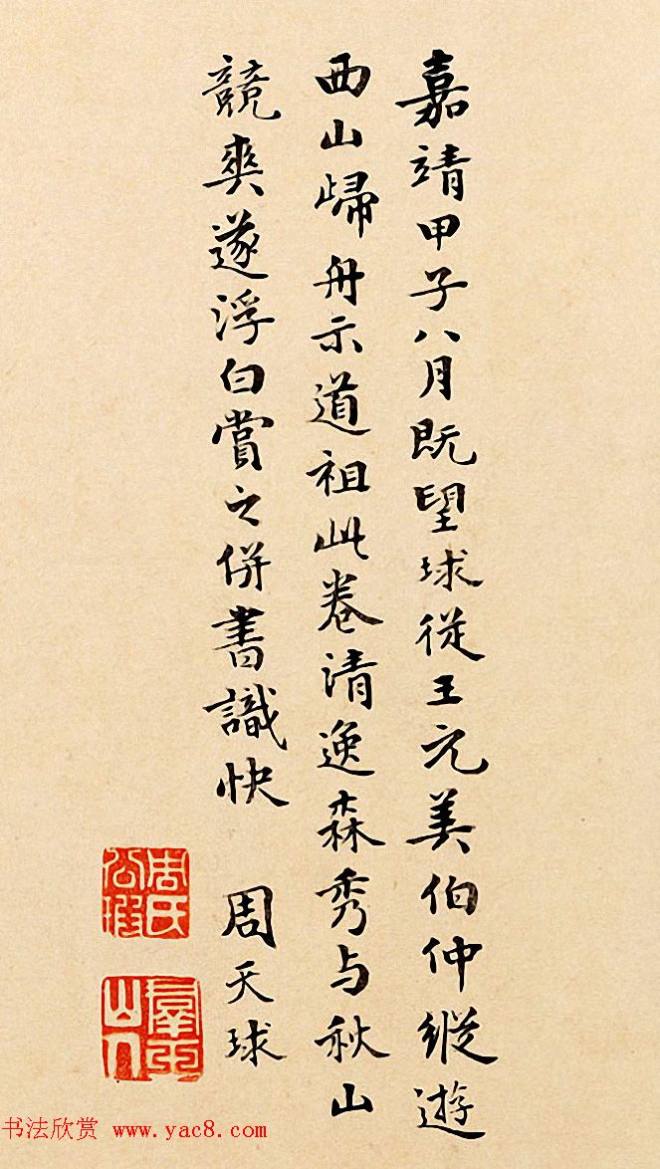 嘉靖甲子八月既望球從王元美伯仲縱遊
西山歸舟示道祖此卷清逸森秀與秋山
競爽遂浮白賞之併書識快 周天球
周氏公瑕
书法欣赏 www.yac8.com